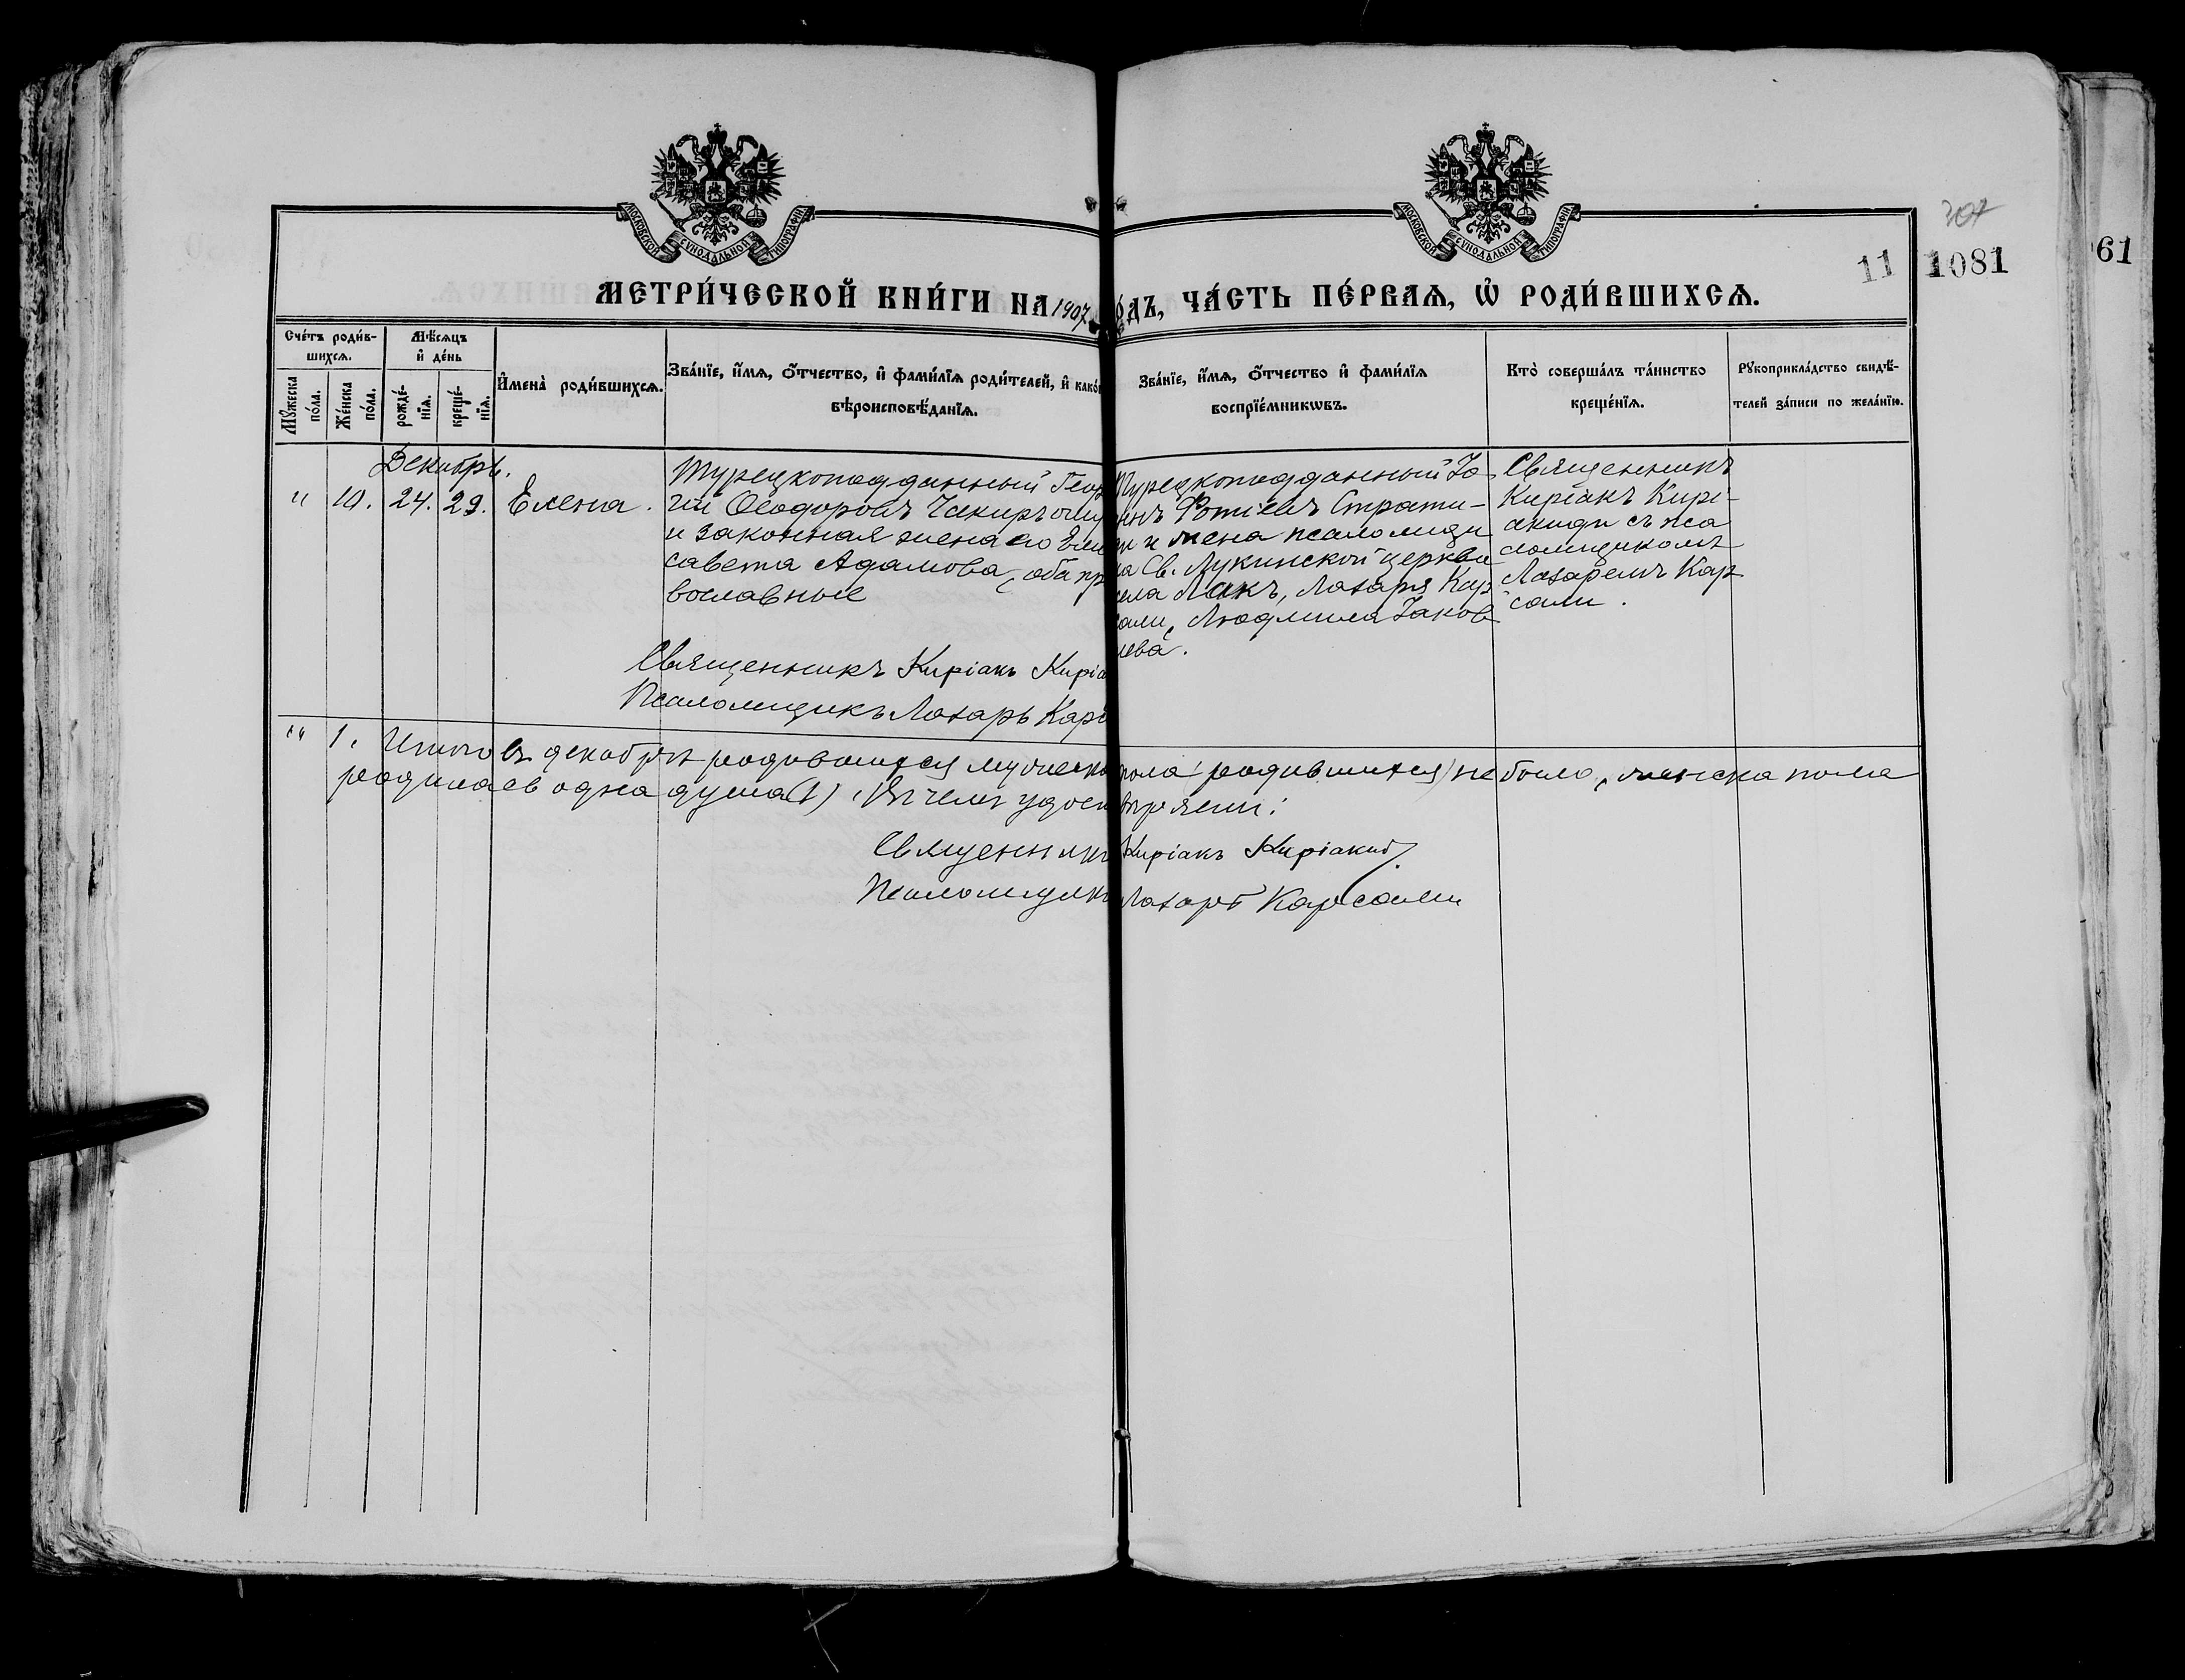 МОСКОВСКОЙ СѴНОДАЛЬНОЙ ТИПОГРАФІИ
МОСКОВСКОЙ СѴНОДАЛЬНОЙ ТИПОГРАФІИ
307
11 1081
61
МЕТРИ́ЧЕСКОЙ КНИ́ГИ НА 1907 О́ДЪ, ЧА́СТЬ ПЕ́РВАѦ, Ѡ҆ РОДИ́ВШИХСѦ.
Сче́тъ роди́в-
шихсѧ.
Мꙋ́жеска
по́ла.
Же́нска
по́ла.
Мѣ́сѧцъ
и҆ де́нь
рожде́-
нїѧ.
креще́-
нїѧ.
И҆мена̀ роди́вшихсѧ.
Зва́нїе, и҆́мѧ, ѻ҆́тчество, и҆ фами́лїѧ роди́телей, и҆ како́
вѣроисповѣ́данїѧ.
Зва́нїе, и҆́мѧ, ѻ҆́тчество и҆ фами́лїѧ
воспрїе́мникѡвъ.
Кто̀ соверша́лъ та́инство
креще́нїѧ.
Рꙋкоприкла́дство свидѣ́-
телей за́писи по жела́нїю.
Декабрь.
" 10. 24. 29. Елена.
Турецкоподданный Геор
гій Ѳеодоровъ Чакиръ
и законная жена его Ели
савета Адамова, оба пр
вославные
Турецкоподданный Іо
ннъ Фотіевъ Страти-
ди и жена псаломщи
ка Св. Лукинской церкви
села Лакъ, Лазаря Кар
сали, Людмила Іаков
лева.
Священникъ
Киріакъ Кирі-
акиди съ пса
ломщикомъ
Лазаремъ Кар
сали.
Священникъ Киріакъ Киріа
Псаломщикъ Лазарь Карс
" 1. Итого въ декабрѣ родившихся мужеска пола родившихся не было, женска пола
родилась одна душа (1). Въ чемъ удостовѣряемъ:
Священникъ Киріакъ Киріакиди
Псаломщикъ Лазарь Карсали